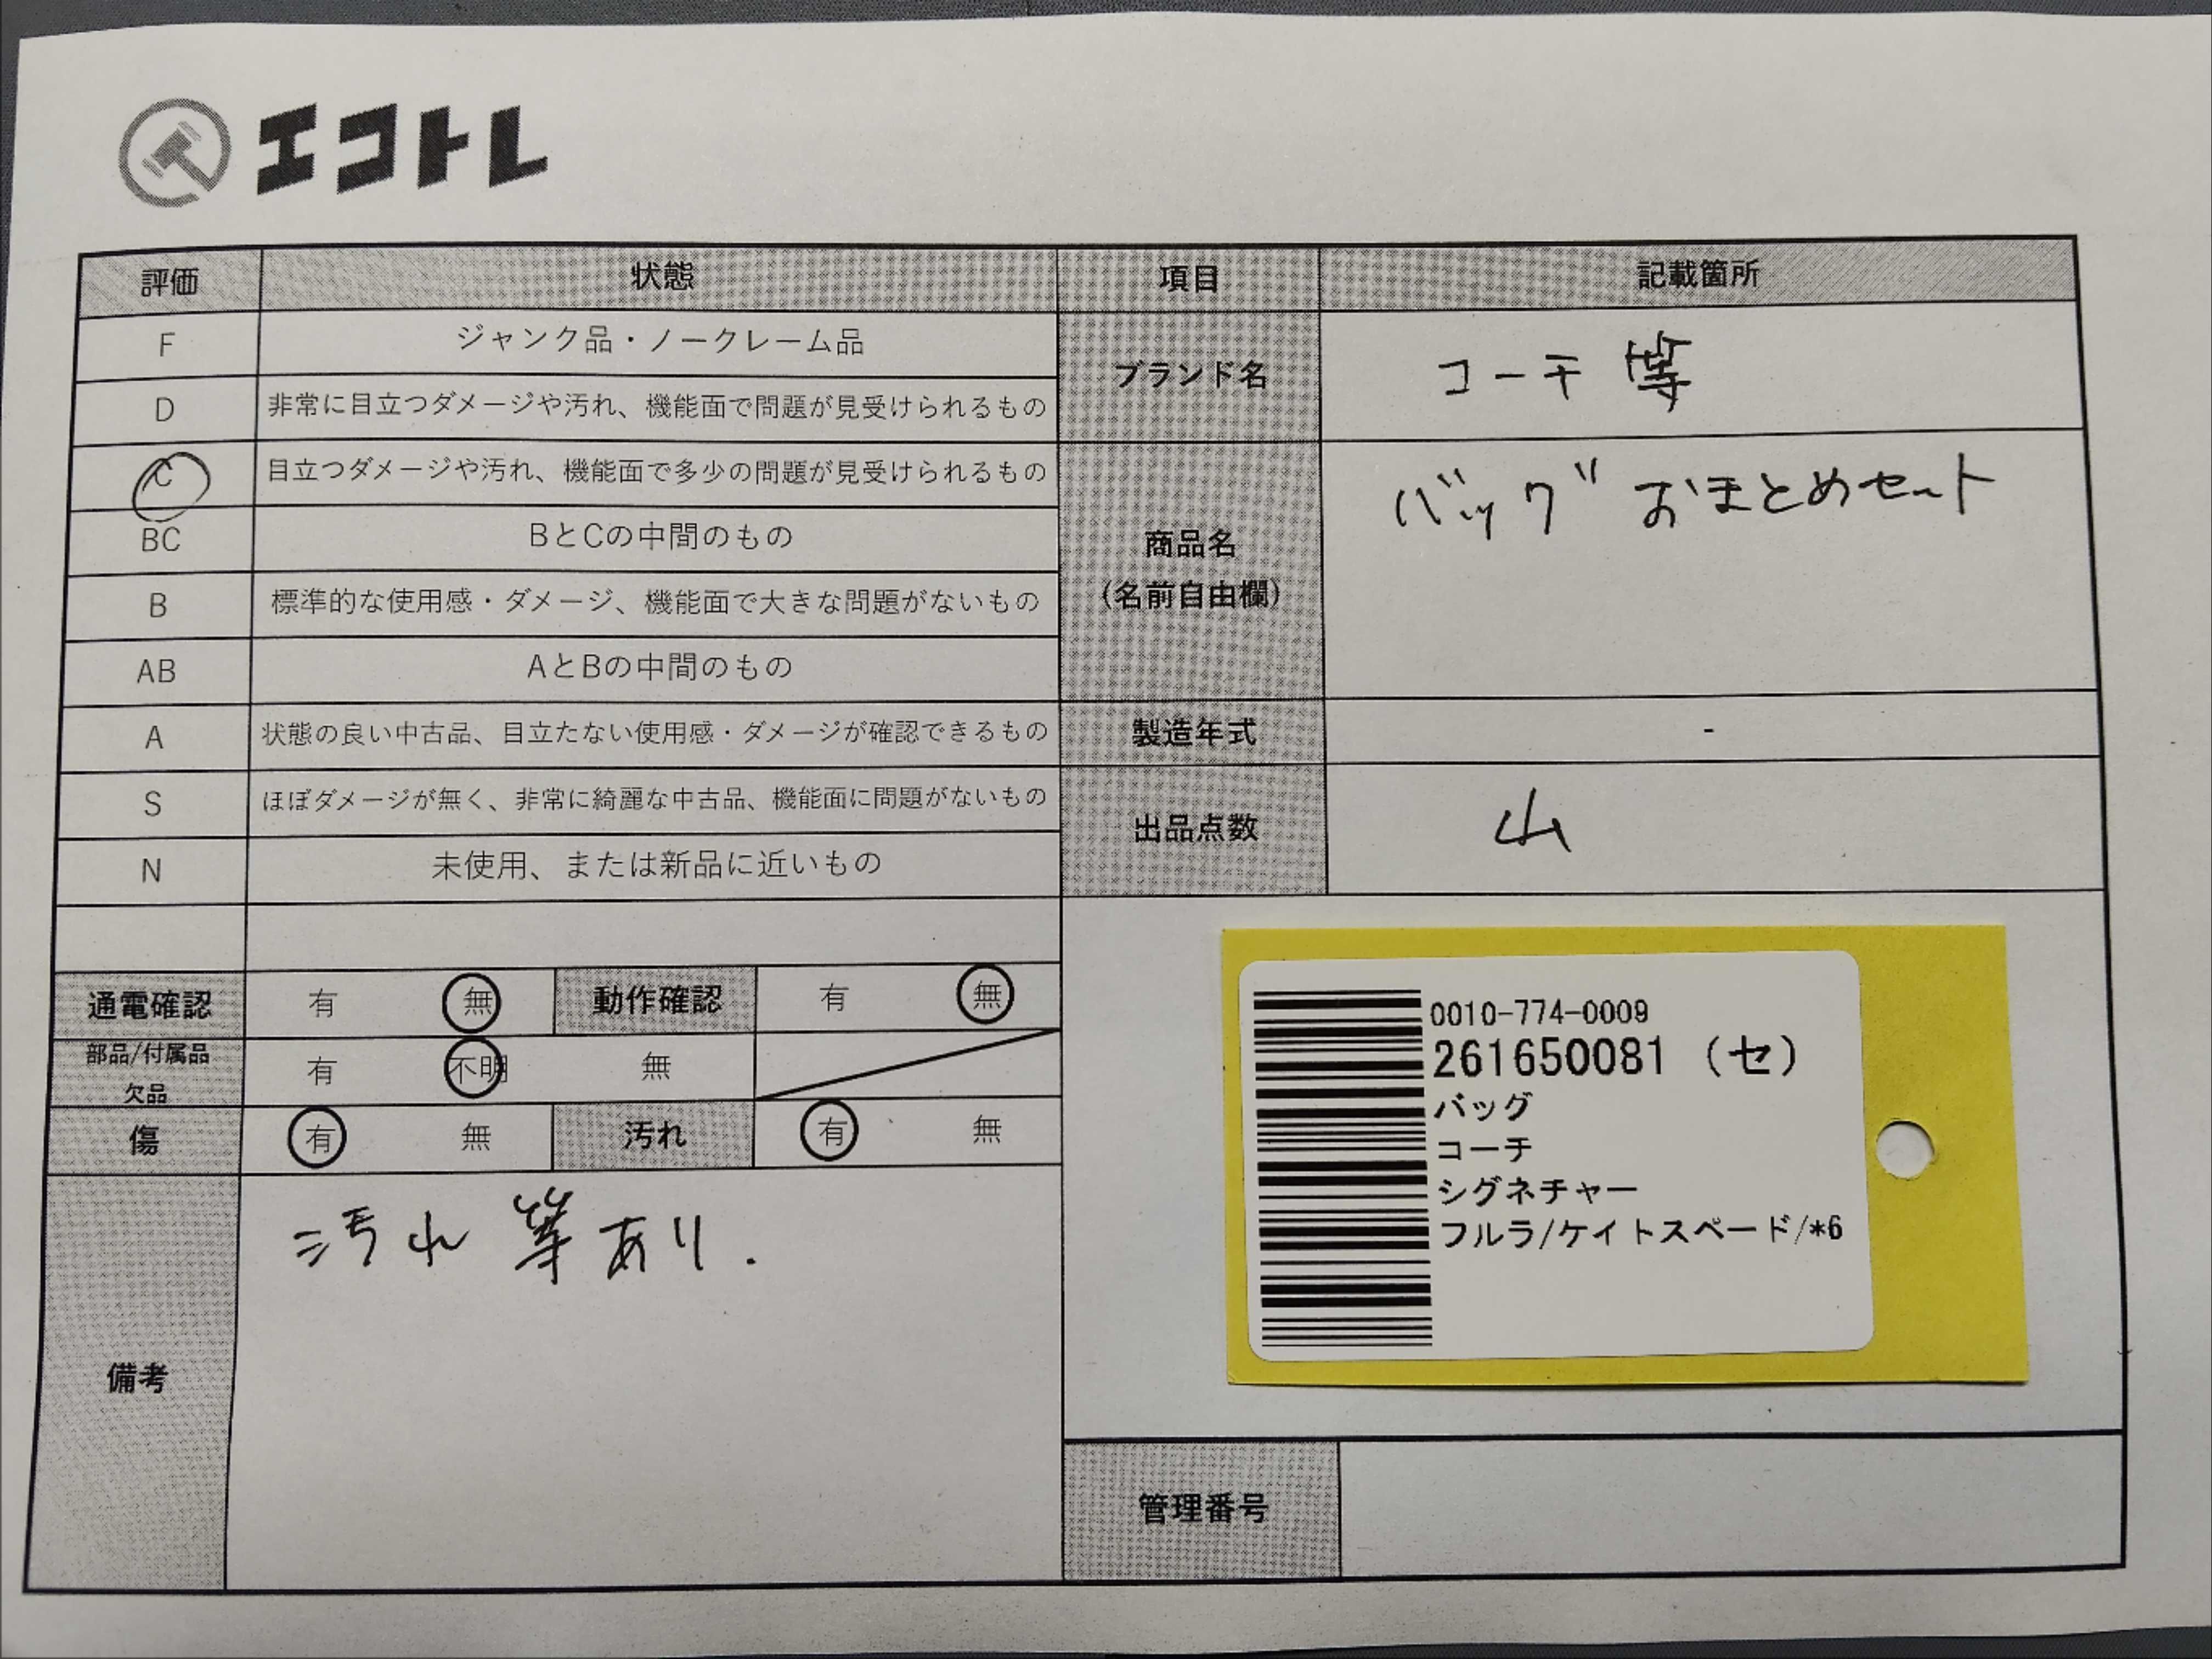 エコトレ
評価 状態 項目 記載箇所
F ジャンク品・ノークレーム品
D 非常に目立つダメージや汚れ、機能面で問題が見受けられるもの
C 目立つダメージや汚れ、機能面で多少の問題が見受けられるもの
BC BとCの中間のもの
B 標準的な使用感・ダメージ、機能面で大きな問題がないもの
AB AとBの中間のもの
A 状態の良い中古品、目立たない使用感・ダメージが確認できるもの
S ほぼダメージが無く、非常に綺麗な中古品、機能面に問題がないもの
N 未使用、または新品に近いもの
ブランド名 コーチ等
商品名 バッグおまとめセット
(名前自由欄)
製造年式 -
出品点数 山
通電確認 有 無 動作確認 有 無
部品/付属品
欠品 有 不明 無
傷 有 無 汚れ 有 無
備考 汚れ等あり.
0010-774-0009
261650081 (セ)
バッグ
コーチ
シグネチャー
フルラ/ケイトスペード/*6
管理番号